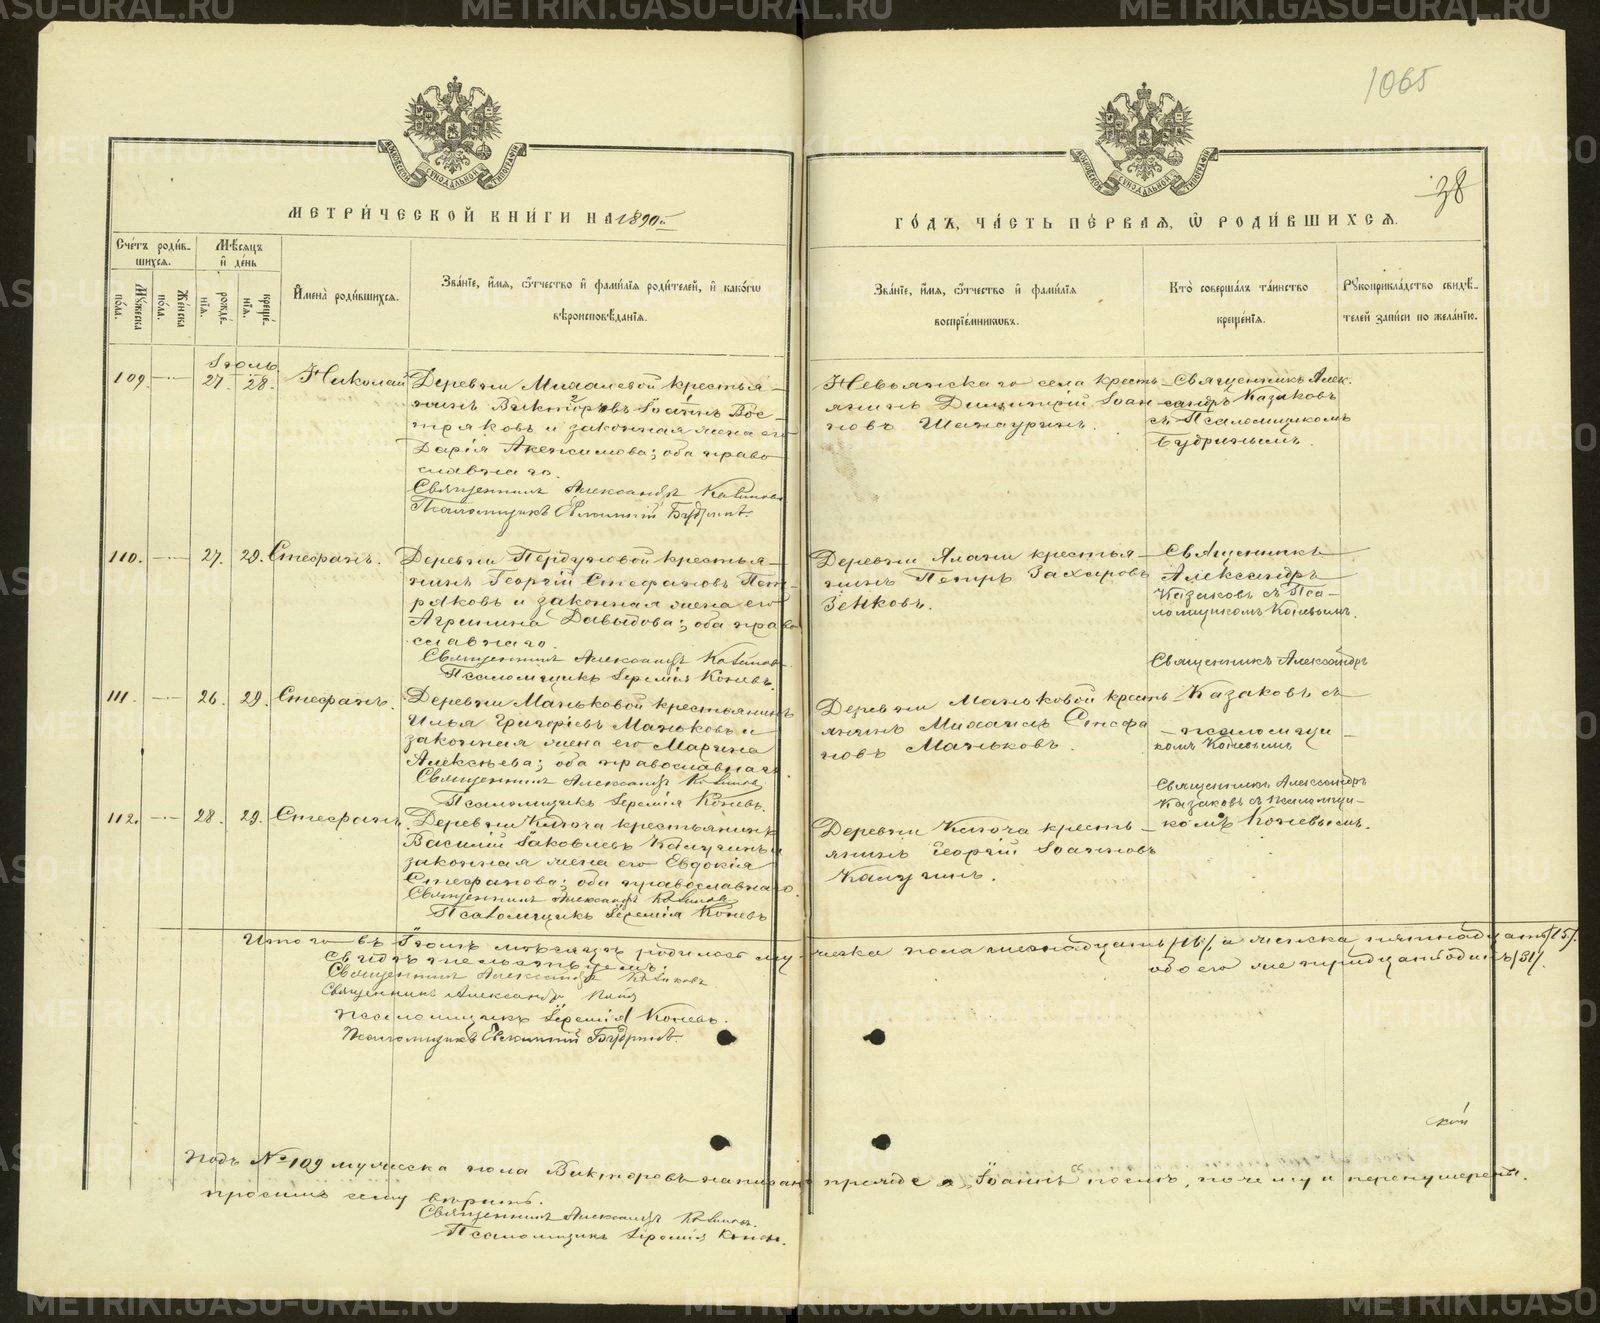 1065
38
МЕТРИЧЕСКОЙ КНИГИ НА 1890
ГОДЪ, ЧАСТЬ ПЕРВАЯ, Ѡ РОДИВШИХСЯ.
Счетъ родив-
шихся.
Мужеска пола.
Женска пола.
Мѣсяцъ и день
рожденія.
крещенія.
Имена родившихся.
Званіе, имя, ѿчество и фамилія родителей, и какогѡ
вѣроисповѣданія.
Званіе, имя, ѿчество и фамилія
воспріемникѡвъ.
Кто совершалъ таинство
крещенія.
Рукоприкладство свидѣ-
телей записи по желанію.
Іюль
109. 27. 28. Николай
Деревни Михалевой крестья-
нинъ Викторовъ Іоаннъ Вос-
тряковъ и законная жена его
Дарія Акенсимова; оба право
славнаго.
Священникъ Александръ Казаковъ
Псаломщикъ Евфимій Будринъ.
Невьянскаго села кресть-
янинъ Димитрій Іоан
новъ Шанауринъ.
Священникъ Алек-
сандръ Казаковъ
съ Псаломщикомъ
Будринымъ.
110. 27. 29. Стефанъ.
Деревни Пердуновой крестья-
нинъ Георгій Стефановъ Пест-
ряковъ и законная жена его
Агрипина Давыдова; оба право
славнаго.
Священникъ Александръ Казаковъ
Псаломщикъ Іеремія Коневъ.
Деревни Ялани крестья-
нинъ Петръ Захаровъ
Зенковъ.
Священникъ
Александръ
Казаковъ съ Пса-
ломщикомъ Коневымъ.
111. 26. 29. Стефанъ.
Деревни Маньковой крестьянинъ
Илья Григоріевъ Маньковъ и
законная жена его Марина
Алексѣева; оба православнаго.
Священникъ Александръ Казаковъ
Псаломщикъ Іеремія Коневъ.
Деревни Маньковой кресть
янинъ Михаилъ Стефа
новъ Маньковъ.
Священникъ Александръ
Казаковъ съ
псаломщи-
комъ Коневымъ
112. 28. 29. Стефанъ.
Деревни Ключа крестьянинъ
Василій Іаковлевъ Калугинъ и
законная жена его Евдокія
Стефанова; оба православнаго.
Священникъ Александръ Казаковъ
Псаломщикъ Іеремія Коневъ
Деревни Ключа кресть-
янинъ Георгій Іоанновъ
Калугинъ.
Священникъ Александръ
Казаковъ съ псаломщи-
комъ Коневымъ.
Итого въ Іюлѣ мѣсяцѣ родилось му-
жеска пола шестнадцать /16/ а женска пятнадцать /15/.
обоего же тридцать одинъ /31/.
Священникъ Александръ Казаковъ
Священникъ Александръ
Псаломщикъ Іеремія Коневъ.
Псаломщикъ Евфимій Будринъ.
Подъ № 109 мужеска пола Викторовъ написанъ прежде а „Іоаннъ" послѣ, почему и перенумерены.
просимъ сему вѣрить.
Священникъ Александръ Казаковъ.
Псаломщикъ Іеремія Коневъ.
METRIKI.GASU-URAL.RU